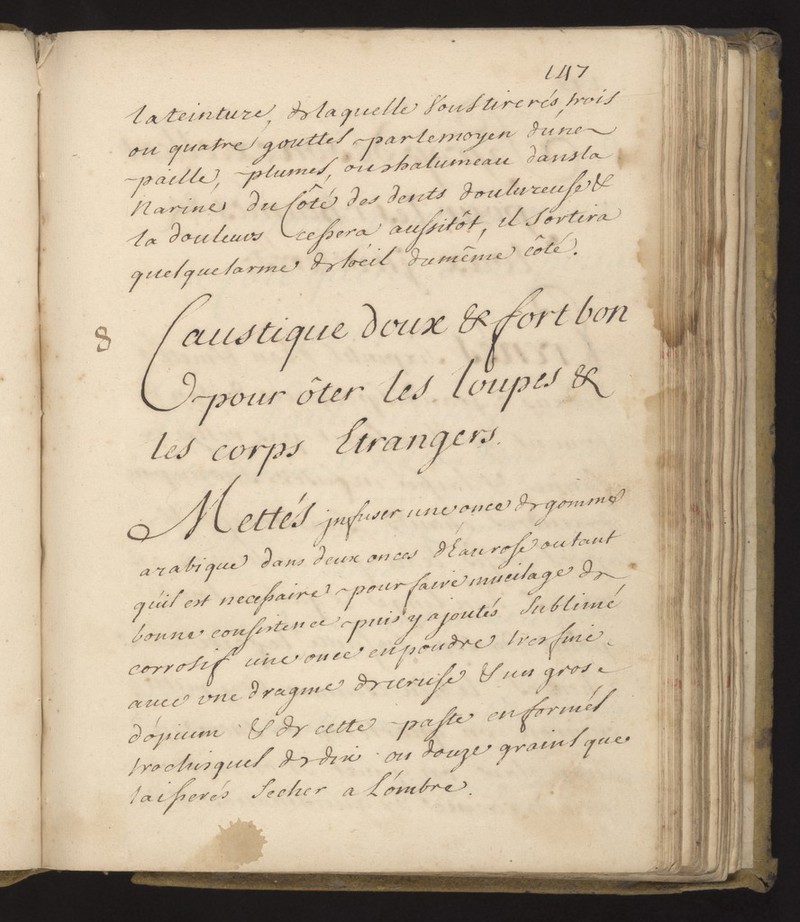 147
la teinture, de laquelle Vous tirerés, trois
ou quatre gouttes par le moyen d'une
paille, plumes, ou chalumeau dans la
Narine du Côté des dents doulureuses &
la douleurs cessera aussitôt, il sortira
quelque larme de l'oéil du même côté.
8 Caustique doux & fort bon
pour ôter les loupes &
les corps Etrangers.
Mettés jnfuser une once de gomme
arabique dans deux onces d'Eau rose ou tant
qu'il est necessaire pour faire mucilage de
bonne consistence puis y ajoutés Sublimé
corrosif une once en poudre tres fine
avec une dragme de ceruse & un gros
d'ópium & de cette paste en formés
trochisques de dix ou douze grains que
laisserés Secher a L'ómbre.